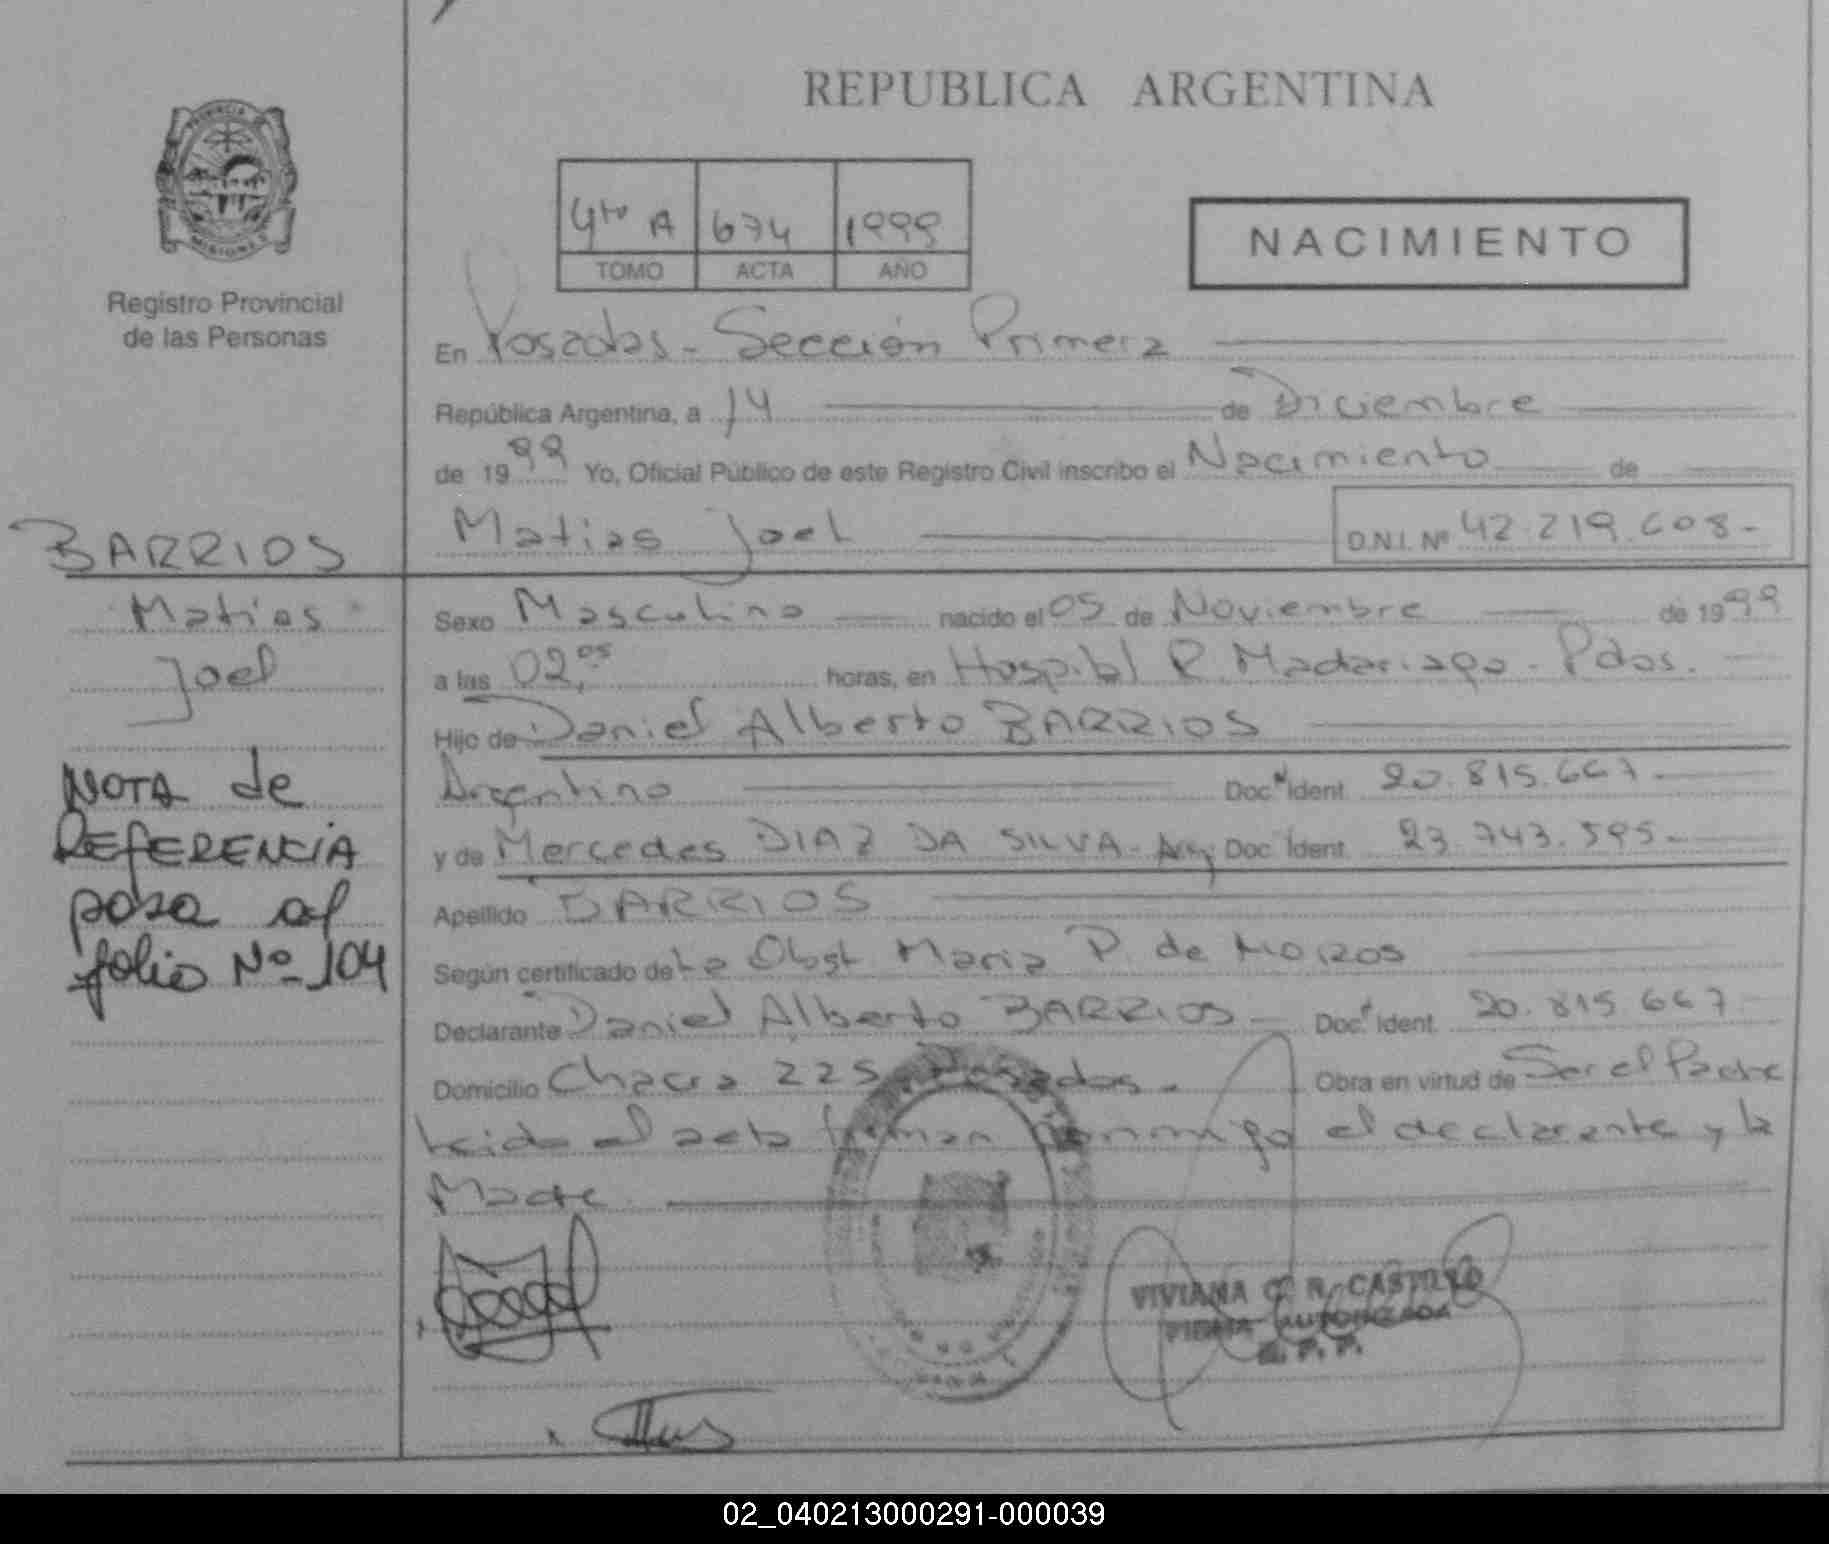 REPUBLICA ARGENTINA
PROVINCIA
MISIONES
Registro Provincial
de las Personas
4to A 674 1999
TOMO ACTA AÑO
NACIMIENTO
En Posadas - Sección Primera
República Argentina, a 14 de Diciembre
de 1999 Yo, Oficial Público de este Registro Civil inscribo el Nacimiento de
Matias Joel D.N.I. Nº 42.219.608-
BARRIOS
Matias
Joel
NOTA de
REFERENCIA
pasa al
folio Nº 104
Sexo Masculino nacido el 05 de Noviembre de 1999
a las 02,05 horas, en Hospital R. Madariaga - Pdas.
Hijo de Daniel Alberto BARRIOS
Argentino Doc. Ident. 20.815.667
y de Mercedes DIAZ DA SILVA - Arg Doc. Ident. 23.743.595-
Apellido BARRIOS
Según certificado de La Obst. Maria P. de
Declarante Daniel Alberto BARRIOS - Doc. Ident. 20.815.667
Domicilio Chacra 225, Posadas. Obra en virtud de Ser el Padre
Leida el acta firman conmigo el declarante y la
Madre
VIVIANA C. R. CASTILLO
FIRMA AUTORIZADA
R. P. P.
02_040213000291-000039